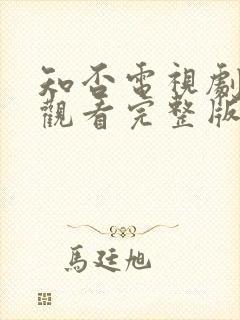 知否電視劇
觀看完整版
馬廷旭